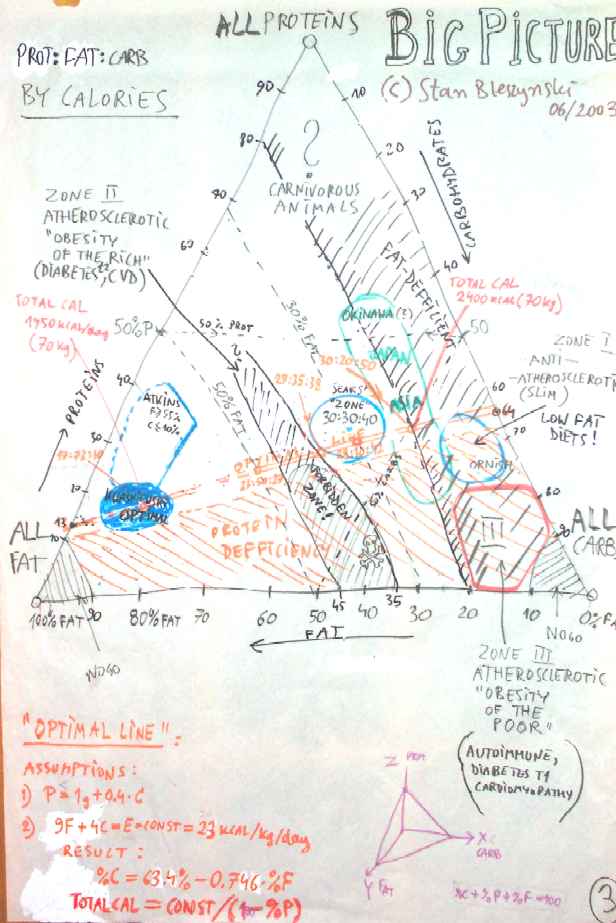 ALL PROTEINS
BIG PICTURE
PROT: FAT: CARB
BY CALORIES
(C) Stan Bleszynski
06/2003
90
10
80
20
?
CARNIVOROUS
ANIMALS
CARBOHYDRATES
30
70
ZONE II
ATHEROSCLEROTIC
"OBESITY
OF THE RICH"
(DIABETES T2, CVD)
60
40
FAT-DEFFICIENT
TOTAL CAL
1750 kcal/day
(70kg)
TOTAL CAL
2400 kcal (70kg)
OKINAWA (?)
50%P
50% PROT
30% FAT
50
JAPAN
ZONE I
ANTI-
-ATHEROSCLEROTIC
(SLIM)
LOW FAT
DIETS!
PROTEINS
40
ATKINS
F>55%
C<10%
50% FAT
?
30:20:50
27:35:38
SEARS'
"ZONE"
30:30:40
ASIA
60
64
70
ORNISH
30
20
OPTIMAL
FORBIDDEN
ZONE!
PROTEIN
DEFFICIENCY
13
10
80
III
ALL
FAT
ALL
CARB
100% FAT
90
80% FAT
70
60
50
45
40
35
30
20
10
0% F
FAT
NOGO
NOGO
ZONE III
ATHEROSCLEROTIC
"OBESITY
OF THE
POOR"
(AUTOIMMUNE,
DIABETES T1
CARDIOMYOPATHY)
"OPTIMAL LINE":
ASSUMPTIONS:
1) P = 1g + 0.4·C
2) 9F + 4C = E = CONST = 23 kcal/kg/day
RESULT:
%C = 63.4% - 0.746·%F
TOTAL CAL = CONST/(100 - %P)
Z PROT
X CARB
Y FAT
%C + %P + %F = 100